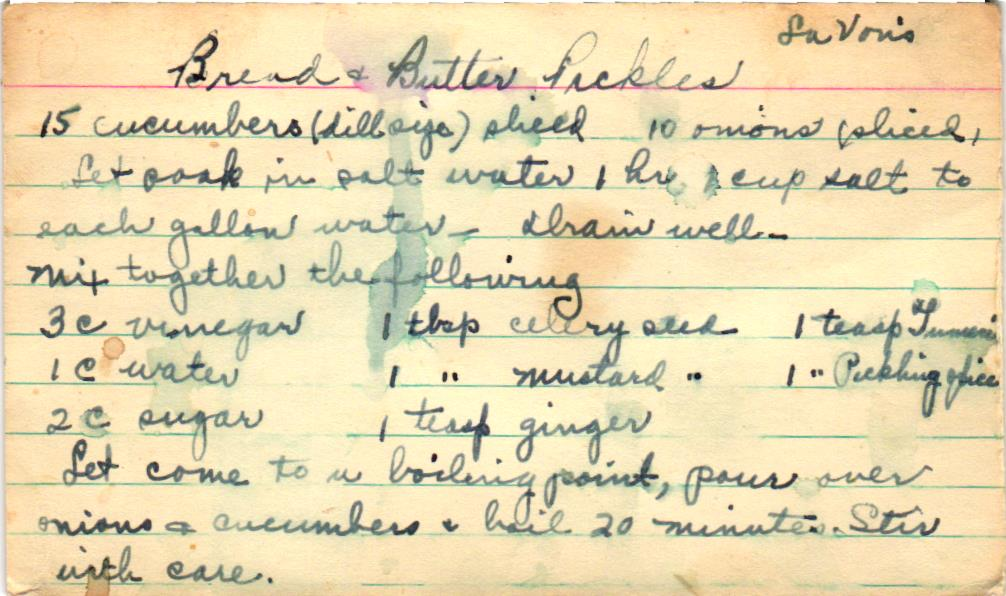 La Von's
Bread & Butter Pickles
15 cucumbers (dill size) sliced 10 onions (sliced)
Let soak in salt water 1 hr 1 cup salt to
each gallon water - drain well -
Mix together the following
3c vinegar 1 tbsp celery seed 1 teasp Tumeric
1 c water 1 " mustard " 1 " Pickling spice
2 c sugar 1 teasp ginger
Let come to a boiling point, pour over
onions & cucumbers & boil 20 minutes. Stir
with care.